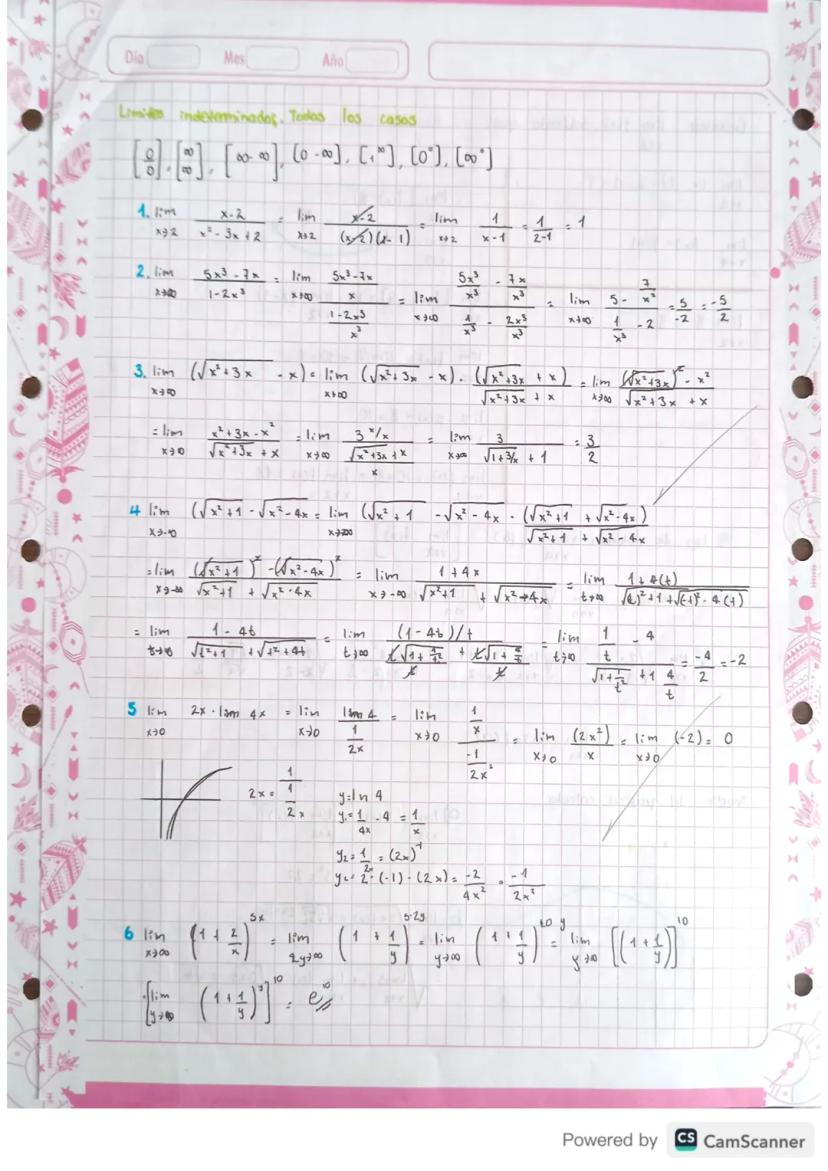 Día Mes Año
Limites indeterminados. Todos los casos
[0/0], [∞/∞], [∞-∞], [0-∞], [1^∞], [0°], [∞°]
1. lim x→2 (x-2)/(x²-3x+2) = lim x→2 (x-2)/((x-2)(x-1)) = lim x→2 1/(x-1) = 1/(2-1) = 1
2. lim x→∞ (5x³-7x)/(1-2x³) = lim x→∞ ((5x³-7x)/x)/((1-2x³)/x³) = lim x→∞ (5x³/x³ - 7x/x³)/(1/x³ - 2x³/x³) = lim x→∞ (5 - 7/x²)/(1/x³ - 2) = 5/-2 = -5/2
3. lim x→∞ (√x²+3x - x) = lim x→∞ (√x²+3x - x) · (√x²+3x + x)/(√x²+3x + x) = lim x→∞ ((√x²+3x)² - x²)/(√x²+3x + x)
= lim x→∞ (x²+3x-x²)/(√x²+3x + x) = lim x→∞ (3x/x)/((√x²+3x + x)/x) = lim x→∞ 3/(√1+3/x + 1) = 3/2
4 lim x→-∞ (√x²+1 - √x²-4x = lim x→-∞ (√x²+1 - √x²-4x · (√x²+1 + √x²-4x)/(√x²+1 + √x²-4x
= lim x→-∞ ((√x²+1)² - (√x²-4x)²)/(√x²+1 + √x²-4x) = lim x→-∞ (1+4x)/(√x²+1 + √x²-4x) = lim t→∞ (1+4(t))/(√(t)²+1 + √(-t)²-4(t))
= lim t→∞ (1-4t)/(√t²+1 + √t²+4t) = lim t→∞ ((1-4t)/t)/((t√1+1/t² + t√1+4/t)/t) = lim t→∞ (1/t - 4)/(√1+1/t² + √1 4/t) = -4/2 = -2
5 lim x→0 2x · lnm 4x = lim x→0 (lnm 4)/(1/2x) = lim x→0 (1/x)/(-1/2x²) = lim x→0 (2x²)/x = lim x→0 (-2) = 0
2x = 1/(1/2x) y=ln 4
y₁=1/4x · 4 = 1/x
y₂=1/2x = (2x)⁻¹
y₂= 2·(-1)·(2x) = -2/4x² = -1/2x²
6 lim x→∞ (1+2/x)^5x = lim 2y→∞ (1+1/y)^5·2y = lim y→∞ (1+1/y)^10y = lim y→∞ [(1+1/y)]^10
[lim y→∞ (1+1/y)^y]^10 = e^10
Powered by CS CamScanner